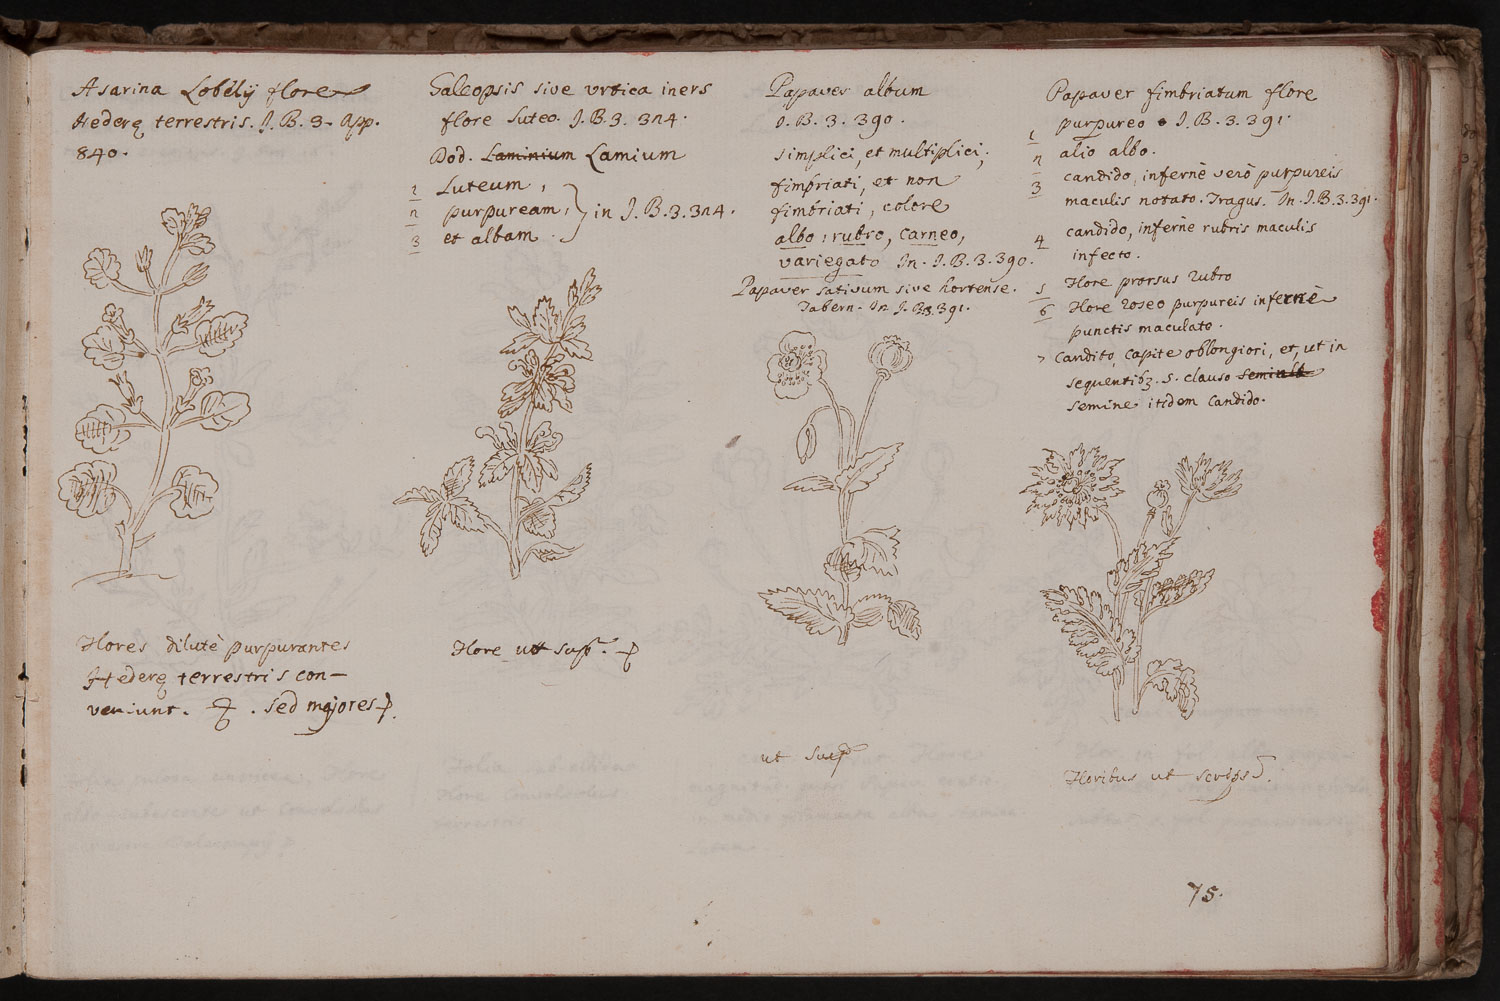 Asarina Lobelij flore
Hederę terrestris. J. B. 3. App.
840.
Flores dilutè purpurantes
Hederę terrestris con-
veniunt. . sed majores
Galeopsis sive urtica iners
flore luteo. J. B. 3. 324.
Dod. Laminium Lamium
1 Luteum,
2 purpuream, in J. B. 3. 324.
3 et albam.
Flore ut sup.
Papaver album
J. B. 3. 390.
simplici, et multiplici,
fimbriati, et non
fimbriati, colore
albo, rubro, carneo,
variegato In. J. B. 3. 390.
Papaver sativum sive hortense.
Tabern. In J. B. 3. 391.
ut sup
Papaver fimbriatum flore
1 purpureo J. B. 3. 391.
2 alio albo.
3 candido, infernè verò purpureis
maculis notato. Tragus. In. J. B. 3. 391.
4 candido, infernè rubris maculis
infecto.
5 flore prorsus rubro
6 flore roseo purpureis infernè
punctis maculato.
7 candito, capite oblongiori, et, ut in
sequentib9. s. clauso
semine itidem candido.
Floribus ut scrips
75.